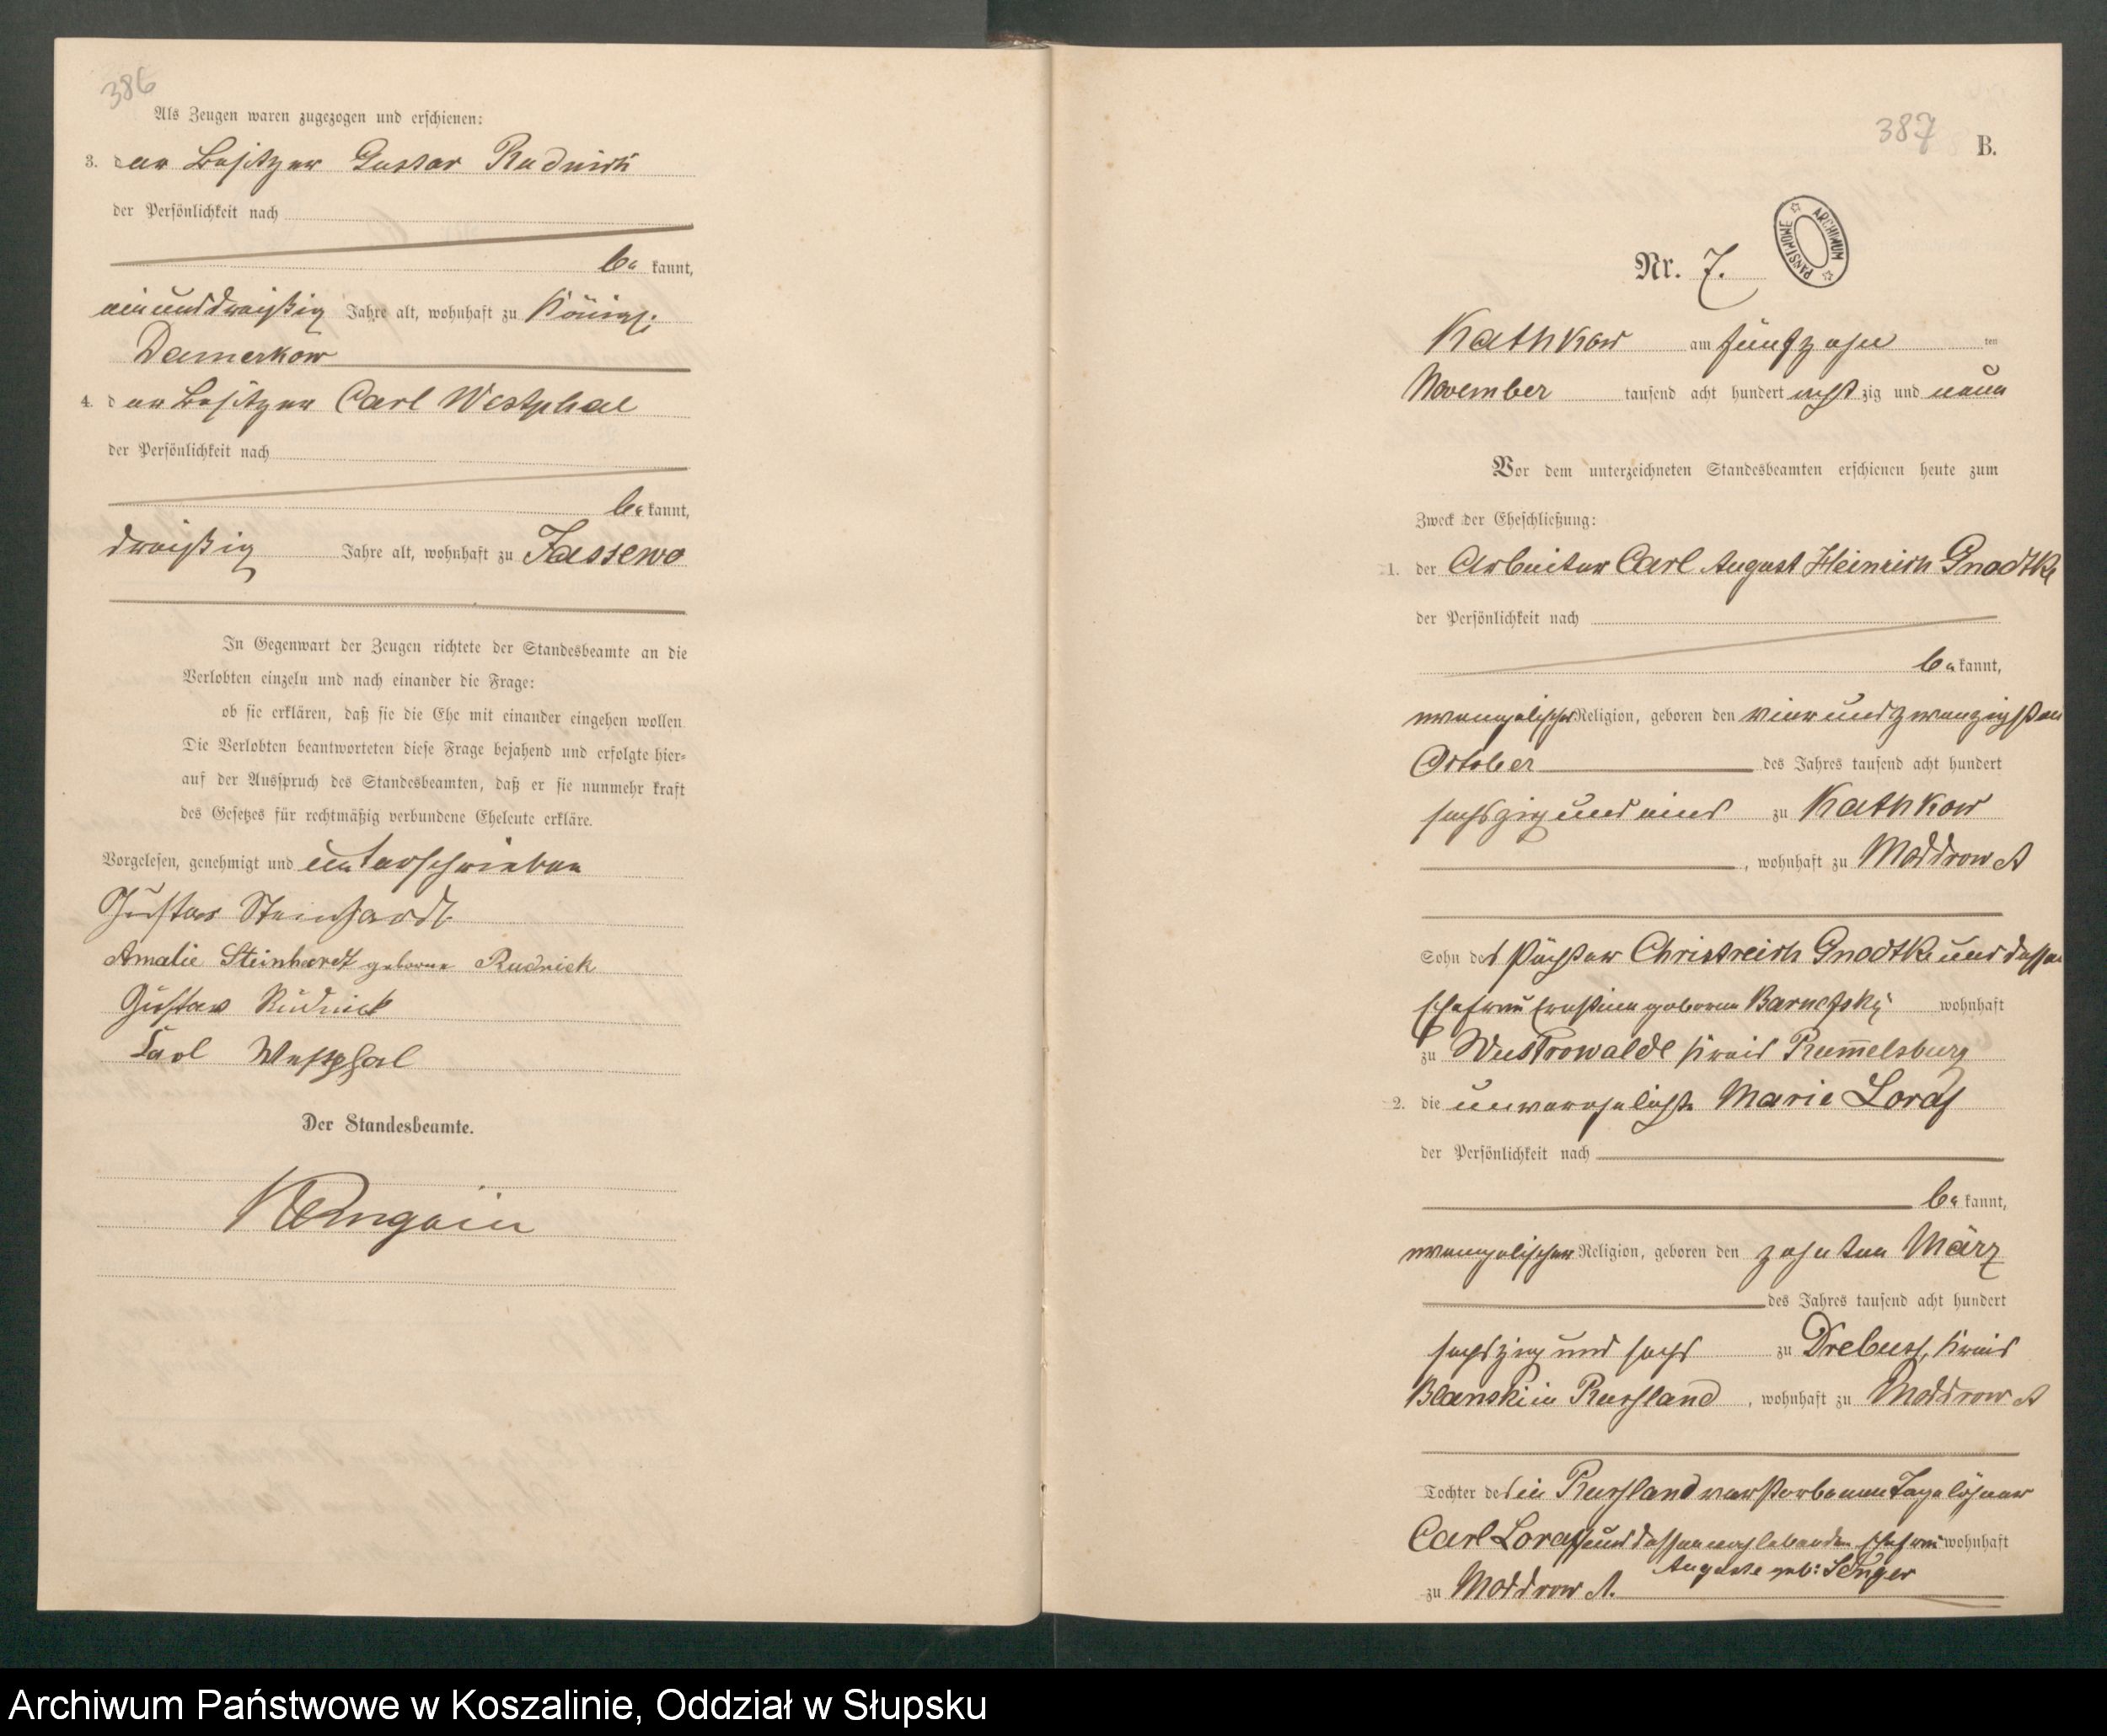 386
Als Zeugen waren zugezogen und erschienen:
3. der Besitzer Gustav Rudnick
der Persönlichkeit nach
be kannt,
einunddreißig Jahre alt, wohnhaft zu Königl:
Damerkow
4. der Besitzer Carl Westphal
der Persönlichkeit nach
be kannt,
dreißig Jahre alt, wohnhaft zu Jassewo
In Gegenwart der Zeugen richtete der Standesbeamte an die
Verlobten einzeln und nach einander die Frage:
ob sie erklären, daß sie die Ehe mit einander eingehen wollen.
Die Verlobten beantworteten diese Frage bejahend und erfolgte hier-
auf der Ausspruch des Standesbeamten, daß er sie nunmehr kraft
des Gesetzes für rechtmäßig verbundene Eheleute erkläre.
Vorgelesen, genehmigt und unterschrieben
Gustav Steinhardt
Amalie Steinhardt geborene Rudnick
Gustav Rudnick
Carl Westphal
Der Standesbeamte.
387
B.
ARCHIWUM PAŃSTWOWE
Nr. 7.
Kathkow am fünfzehn ten
November tausend acht hundert acht zig und neun
Vor dem unterzeichneten Standesbeamten erschienen heute zum
Zweck der Eheschließung:
1. der Arbeiter Carl August Heinrich Gnadtke
der Persönlichkeit nach
be kannt,
evangelischer Religion, geboren den vierundzwanzigsten
October des Jahres tausend acht hundert
sechszig und eins zu Kathkow
, wohnhaft zu Moddrow A
Sohn des Pächter Christreich Gnadtke und dessen
Ehefrau geborene wohnhaft
zu Wustrowalde Kreis Rummelsburg
2. die unverehelichte Marie Loraß
der Persönlichkeit nach
be kannt,
evangelischer Religion, geboren den zehnten März
des Jahres tausend acht hundert
sechszig und sechs zu Kreis
Blanski in Russland, wohnhaft zu Moddrow A
Tochter des in Russland verstorbenen Tagelöhner
Carl Loraß und dessen noch lebenden Ehefrau wohnhaft
Auguste geb: Senger
zu Moddrow A.
Archiwum Państwowe w Koszalinie, Oddział w Słupsku